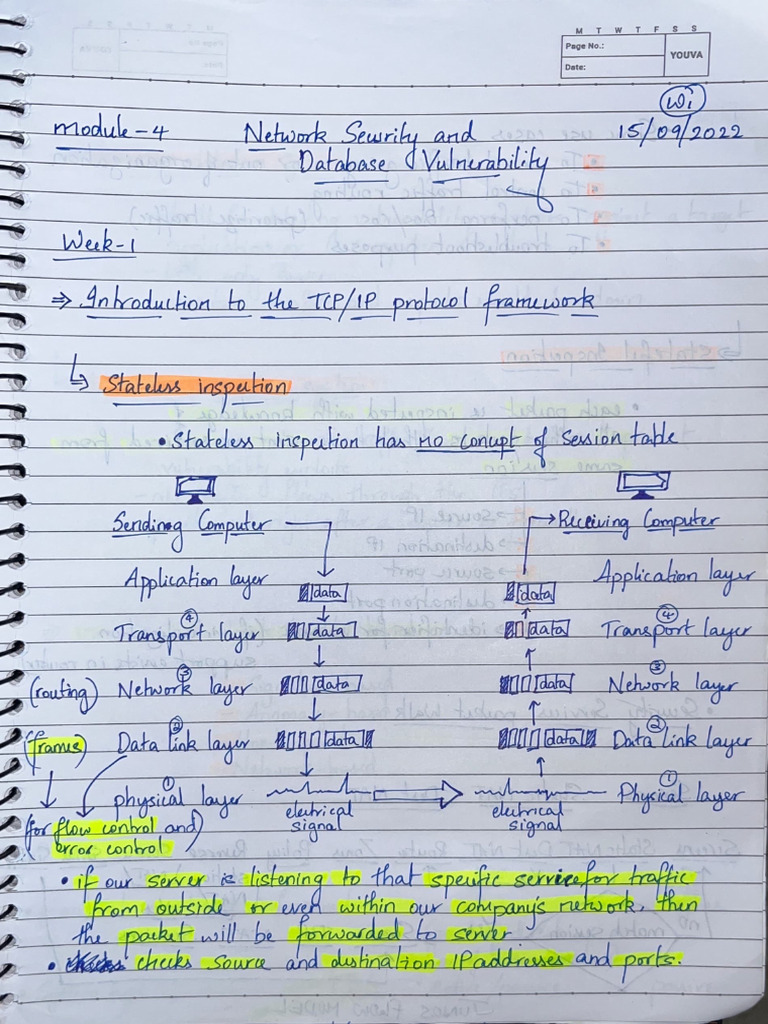 M T W T F S S
Page No.:
YOUVA
Date:
W1
Module-4 Network Security and 15/09/2022
Database Vulnerability
Week-1
⇒ Introduction to the TCP/IP protocol framework
↳ Stateless inspection
• Stateless inspection has no concept of session table
Sending Computer → Receiving Computer
Application layer data data Application layer
④ ④
Transport layer data data Transport layer
③ ③
(routing) Network layer data data Network layer
② ②
(frames) Data link layer data data Data link layer
① ①
physical layer electrical signal electrical signal Physical layer
(for flow control and
error control)
• if our server is listening to that specific service for traffic
from outside or even within our company's network, then
the packet will be forwarded to server
• checks source and destination IP addresses and ports.